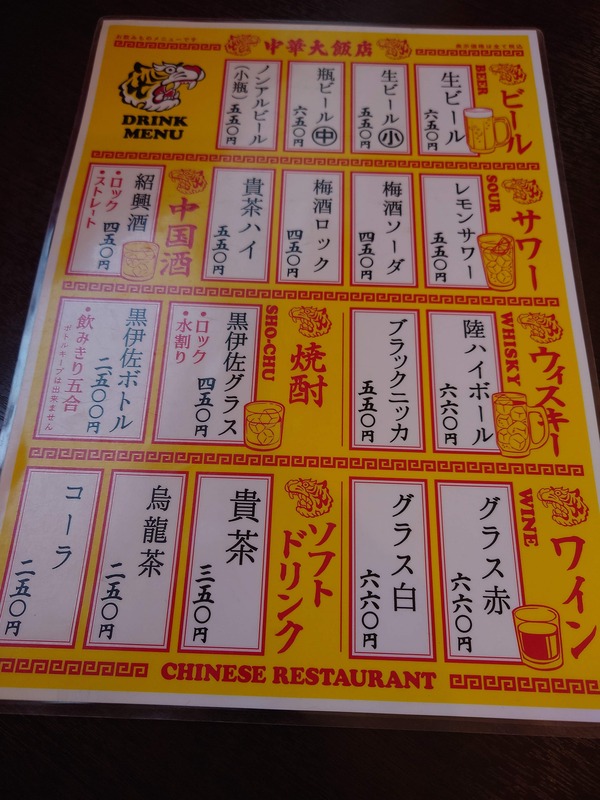 お飲みものメニューです
中華大飯店
表示価格は全て税込
DRINK
MENU
ビール
BEER
生ビール
六五〇円
生ビール㊥小
五五〇円
瓶ビール㊥
六五〇円
ノンアルビール
(小瓶)
五五〇円
サワー
SOUR
レモンサワー
五五〇円
梅酒ソーダ
四五〇円
梅酒ロック
四五〇円
貴茶ハイ
五五〇円
中国酒
紹興酒
四五〇円
・ロック
・ストレート
ウィスキー
WHISKY
陸ハイボール
六六〇円
ブラックニッカ
五五〇円
焼酎
SHO-CHU
黒伊佐グラス
四五〇円
・ロック
・水割り
黒伊佐ボトル
二五〇〇円
・飲みきり五合
ボトルキープは出来ません
ワイン
WINE
グラス赤
六六〇円
グラス白
六六〇円
ソフト
ドリンク
貴茶
三五〇円
烏龍茶
二五〇円
コーラ
二五〇円
CHINESE RESTAURANT